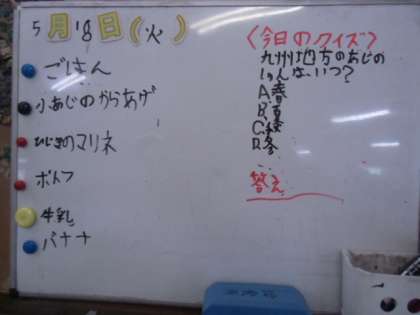 5月18日(火)
ごはん
小あじのからあげ
ひじきのマリネ
ポトフ
牛乳
バナナ
〈今日のクイズ〉
九州地方のあじの
しゅんはいつ?
A.春
B.夏
C.秋
D.冬
答え